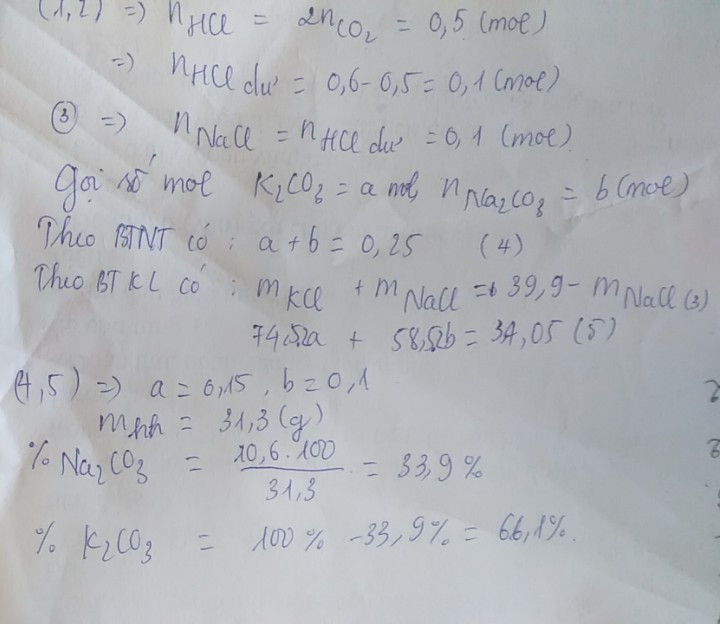 (1,2) => nHCl = 2nCO2 = 0,5 (mol)
=> nHCl dư = 0,6 - 0,5 = 0,1 (mol)
③ => nNaCl = nHCl dư = 0,1 (mol)
Gọi số mol K2CO3 = a mol, nNa2CO3 = b (mol)
Theo BTNT có : a + b = 0,25 (4)
Theo BTKL có : mKCl + mNaCl = 39,9 - mNaCl (3)
74,5.2a + 58,5.2b = 34,05 (5)
(4,5) => a = 0,15, b = 0,1
mhh = 31,3 (g)
% Na2CO3 = 10,6.100 / 31,3 = 33,9 %
% K2CO3 = 100 % - 33,9 % = 66,1 %.